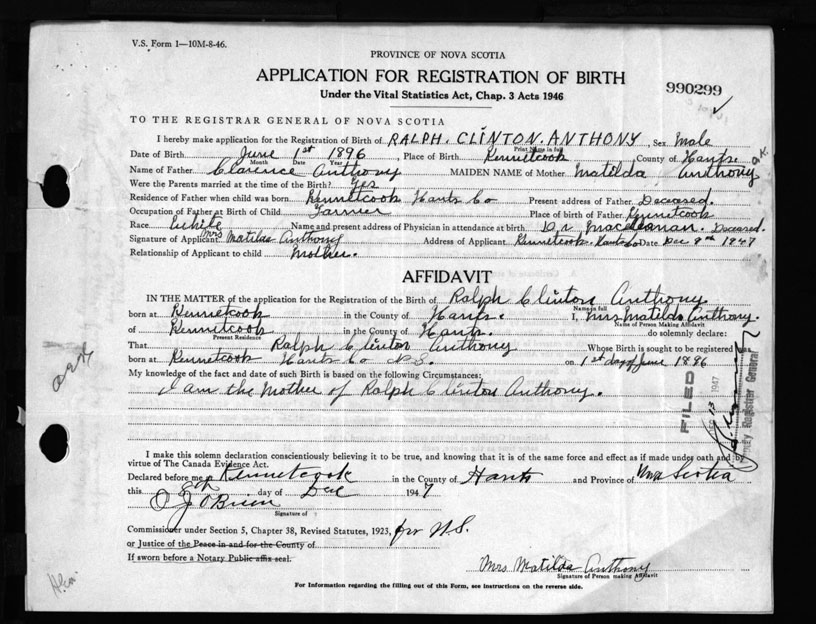 V.S. Form 1—10M-8-46.
PROVINCE OF NOVA SCOTIA
APPLICATION FOR REGISTRATION OF BIRTH
990299
Under the Vital Statistics Act, Chap. 3 Acts 1946
TO THE REGISTRAR GENERAL OF NOVA SCOTIA
I hereby make application for the Registration of Birth of RALPH. CLINTON. ANTHONY, Sex Male
Print Name in full
Date of Birth June 1st 1896 Place of Birth Kennetcook County of Hants.
Month Date Year
Name of Father Clarence Anthony MAIDEN NAME of Mother Matilda Anthony o.k.
Were the Parents married at the time of the Birth? Yes
Residence of Father when child was born Kennetcook Hants Co Present address of Father Deceased.
Occupation of Father at Birth of Child Farmer Place of birth of Father Kennetcook
Race White Name and present address of Physician in attendance at birth Dr Deceased.
Signature of Applicant Mrs Matilda Anthony Address of Applicant Kennetcook. Hants Co Date Dec 8th 1947
Relationship of Applicant to child Mother.
AFFIDAVIT
IN THE MATTER of the application for the Registration of the Birth of Ralph Clinton Anthony
Name in full
born at Kennetcook in the County of Hants. I, Mrs Matilda Anthony.
Name of Person Making Affidavit
of Kennetcook in the County of Hants. do solemnly declare:
Present Residence
That Ralph Clinton Anthony Whose Birth is sought to be registered
born at Kennetcook Hants Co N.S. on 1st day of June 1896
My knowledge of the fact and date of such Birth is based on the following Circumstances:
I am the Mother of Ralph Clinton Anthony.
FILED
13 1947
Registrar General
I make this solemn declaration conscientiously believing it to be true, and knowing that it is of the same force and effect as if made under oath and by
virtue of The Canada Evidence Act.
Declared before me at Kennetcook in the County of Hants and Province of Nova Scotia
this 8th day of Dec 1947
O J O'Brien
Signature of
Commissioner under Section 5, Chapter 38, Revised Statutes, 1923, for N.S.
or Justice of the Peace in and for the County of
If sworn before a Notary Public affix seal.
Mrs Matilda Anthony
Signature of Person making Affidavit
For Information regarding the filling out of this Form, see instructions on the reverse side.